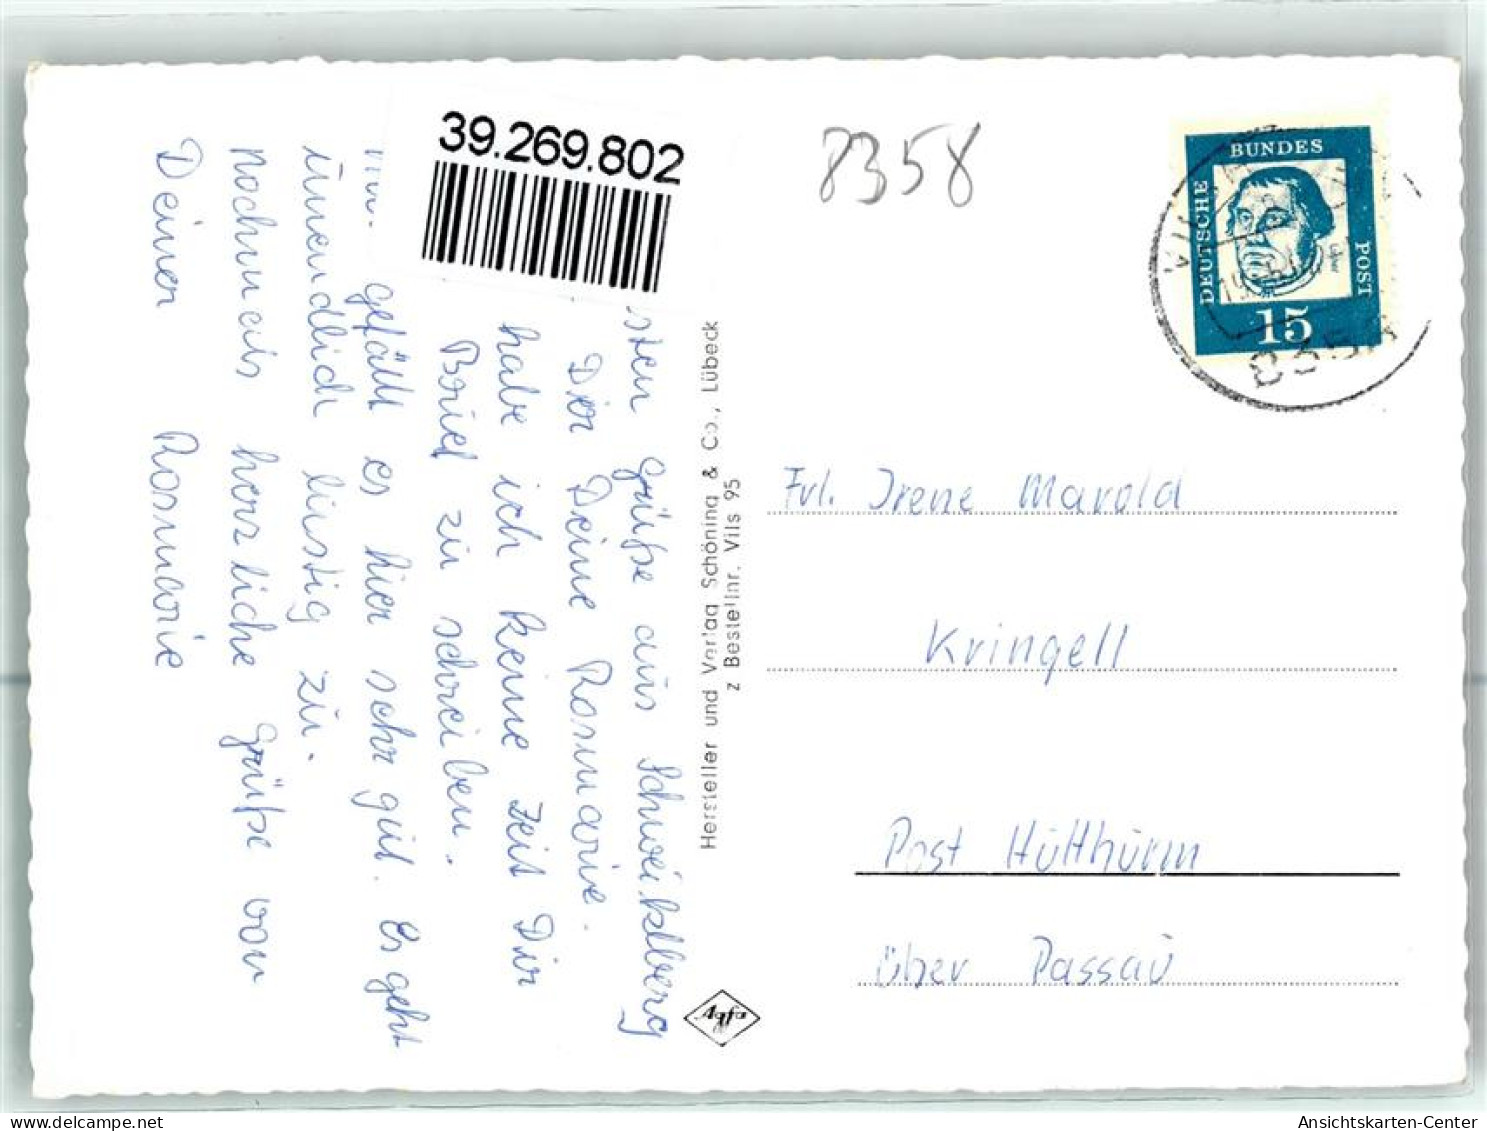 39.269.802
8358
sten Grüße aus Schweiklberg
Dir Deine Rosmarie.
habe ich keine Zeit Dir
Brief zu schreiben.
Mir gefällt es hier sehr gut. Es geht
unendlich lustig zu.
Nochmals herzliche Grüße von
Deiner Rosmarie
Hersteller und Verlag Schöning & Co., Lübeck
z Bestellnr. Vils 95
Agfa
DEUTSCHE
BUNDES
POST
15
8358
Frl. Irene Marold
Kringell
Post Hütthurm
über Passau
delcampe.net
Ansichtskarten-Center